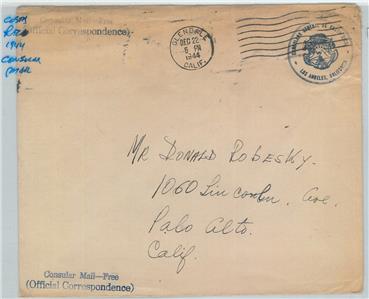 COSTA
RICA
1944
CONSULAR
COVER
Consular Mail—Free
(Official Correspondence)
GLENDALE
DEC 22
6 PM
1944
CALIF.
CONSULADO GENERAL DE
LOS ANGELES, CALIFORNIA
Mr Donald Robesky.
1060 Lincoln, Ave,
Palo Alto.
Calif.
Consular Mail—Free
(Official Correspondence)